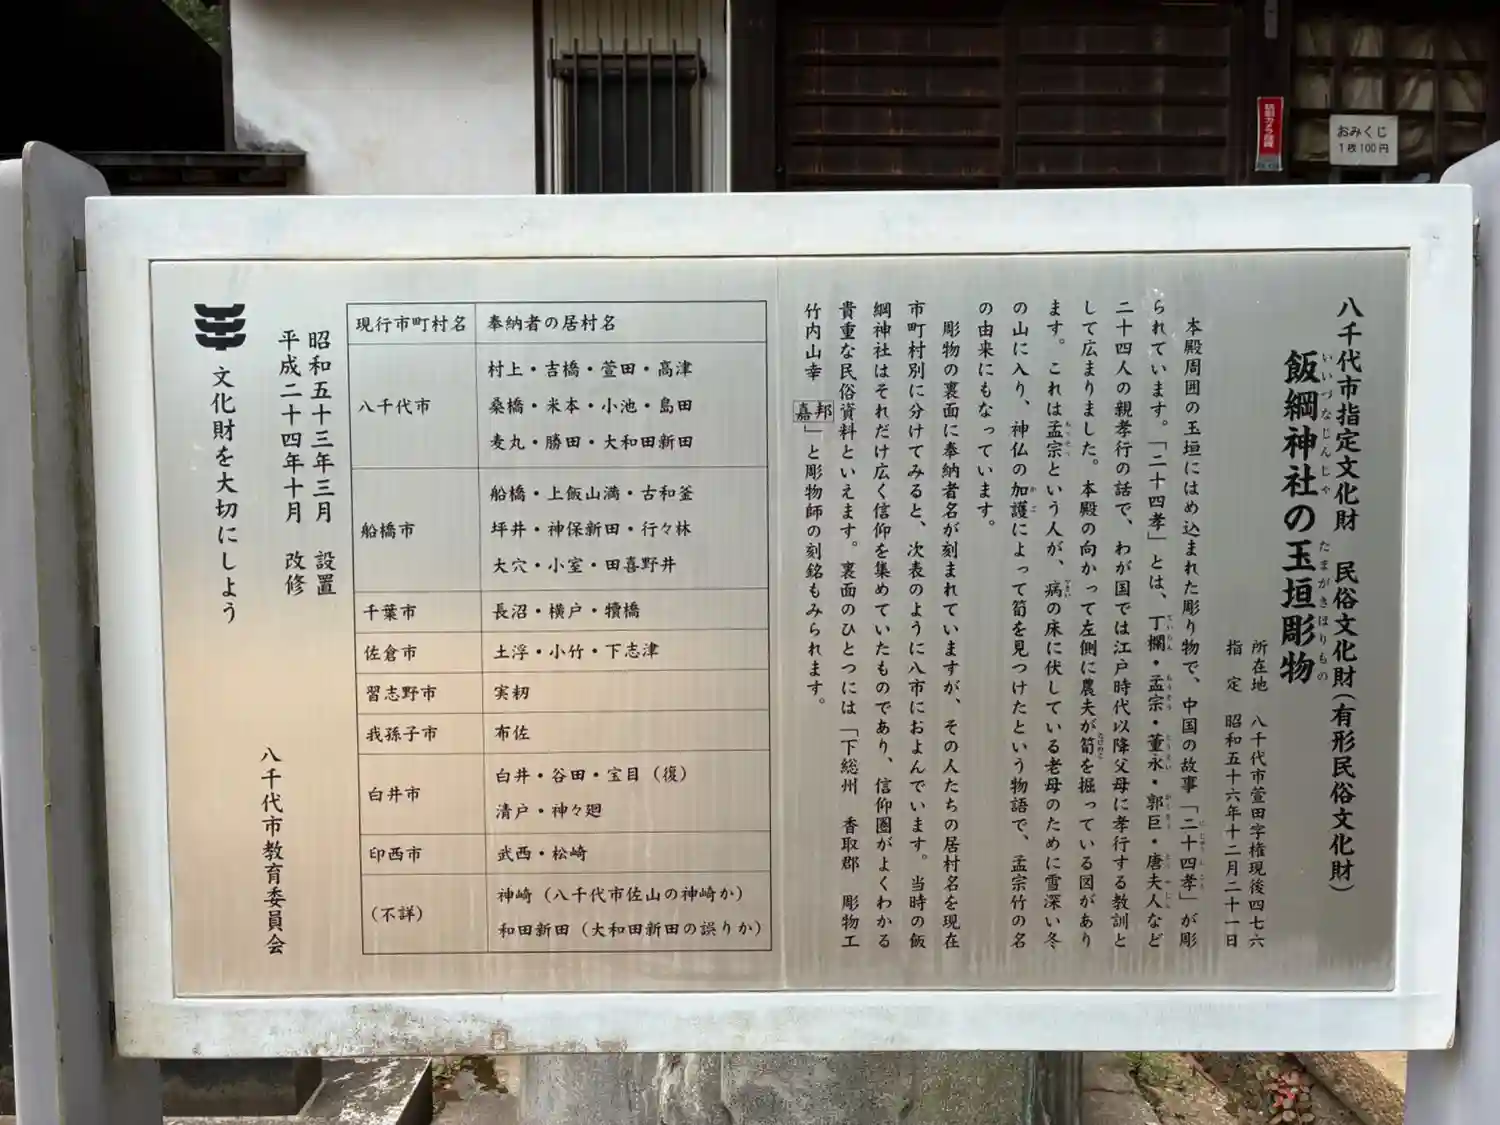 おみくじ
1枚100円
八千代市指定文化財　民俗文化財（有形民俗文化財）
いいづなじんじゃ　たまがきほりもの
飯綱神社の玉垣彫物
所在地　八千代市萱田字権現後四七六
指　定　昭和五十六年十二月二十一日
本殿周囲の玉垣にはめ込まれた彫り物で、中国の故事「二十四孝」が彫
られています。「二十四孝」とは、丁欄・孟宗・董永・郭巨・唐夫人など
二十四人の親孝行の話で、わが国では江戸時代以降父母に孝行する教訓と
して広まりました。本殿の向かって左側に農夫が筍を掘っている図があり
ます。これは孟宗という人が、病の床に伏している老母のために雪深い冬
の山に入り、神仏の加護によって筍を見つけたという物語で、孟宗竹の名
の由来にもなっています。
彫物の裏面に奉納者名が刻まれていますが、その人たちの居村名を現在
市町村別に分けてみると、次表のように八市におよんでいます。当時の飯
綱神社はそれだけ広く信仰を集めていたものであり、信仰圏がよくわかる
貴重な民俗資料といえます。裏面のひとつには「下総州　香取郡　彫物工
竹内山幸　嘉邦」と彫物師の刻銘もみられます。
現行市町村名　奉納者の居村名
八千代市　村上・吉橋・萱田・高津
桑橋・米本・小池・島田
麦丸・勝田・大和田新田
船橋市　船橋・上飯山満・古和釜
坪井・神保新田・行々林
大穴・小室・田喜野井
千葉市　長沼・横戸・犢橋
佐倉市　土浮・小竹・下志津
習志野市　実籾
我孫子市　布佐
白井市　白井・谷田・宝目（復）
清戸・神々廻
印西市　武西・松崎
（不詳）　神崎（八千代市佐山の神崎か）
和田新田（大和田新田の誤りか）
昭和五十三年三月　設置
平成二十四年十月　改修
八千代市教育委員会
文化財を大切にしよう